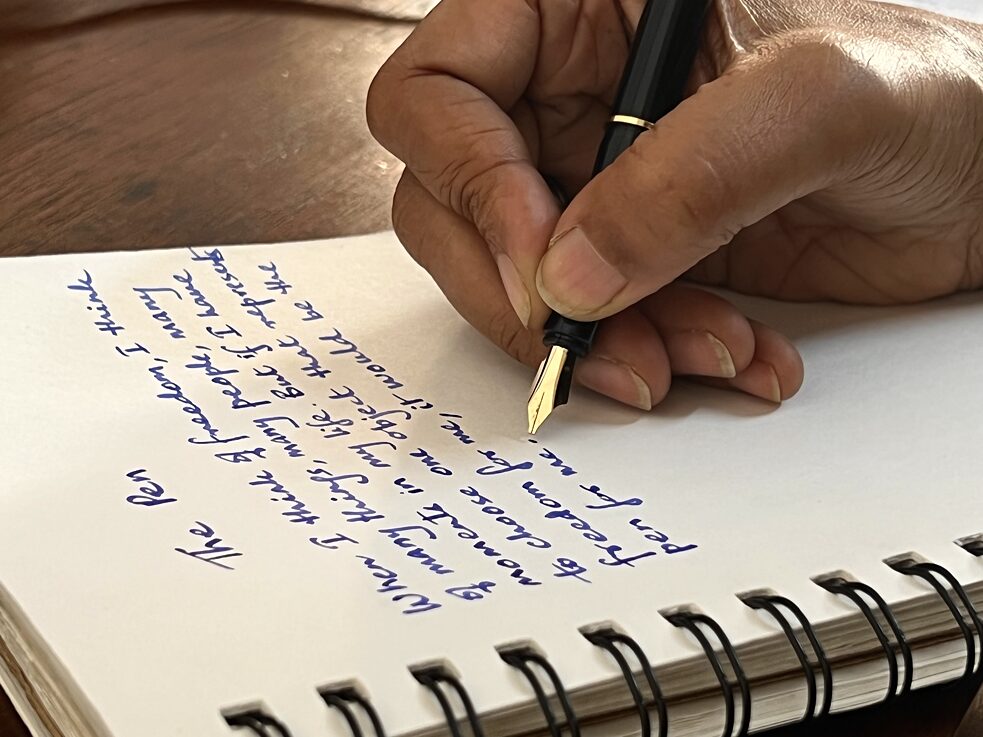 The Pen
When I think of freedom, I think
of many things, many people, many
moments in my life. But if I have
to choose one object that represents
freedom for me, it would be the
pen for me.